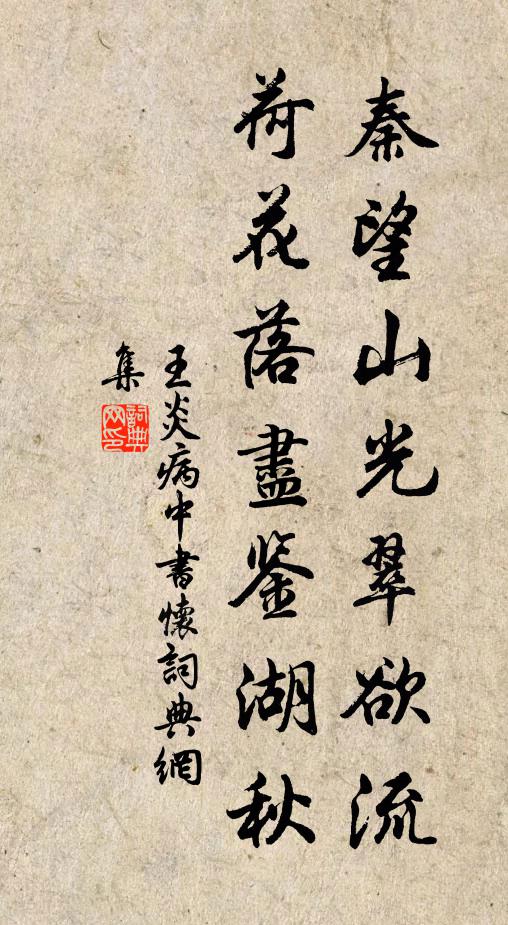 秦望山光翠欲流
荷花落盡鉴湖秋
王炎病中書懷詞典網
集
詞典
网印